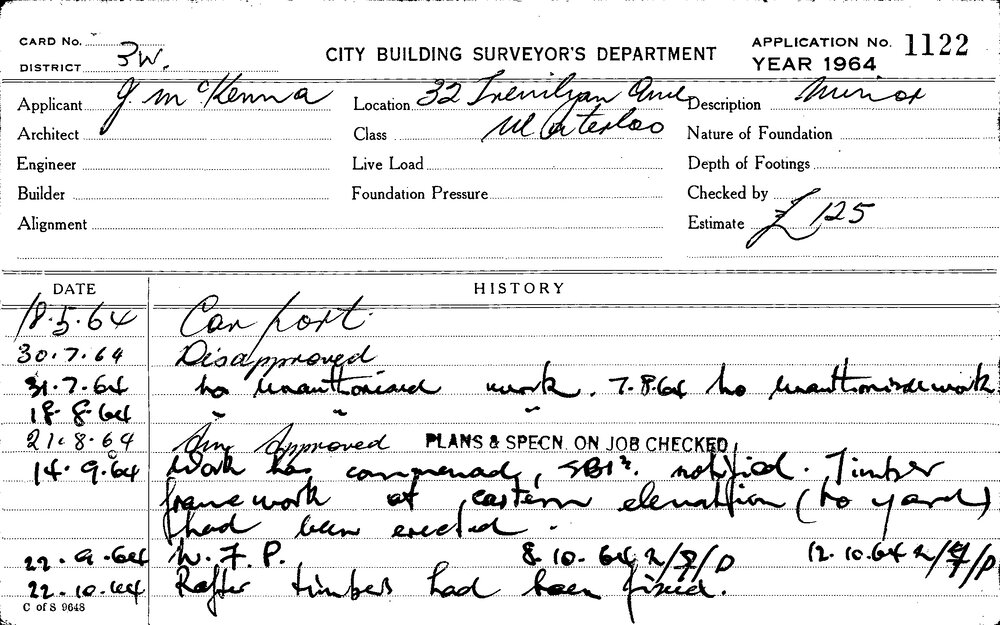 CARD No.
CITY BUILDING SURVEYOR'S DEPARTMENT
APPLICATION No. 1122
DISTRICT 3W.
YEAR 1964
Applicant J. McKenna
Location 32 Trevilyan Ave
Description Minor
Architect
Class Waterloo
Nature of Foundation
Engineer
Live Load
Depth of Footings
Builder
Foundation Pressure
Checked by
Alignment
Estimate £125
DATE
HISTORY
18.5.64 Car port.
30.7.64 Disapproved
31.7.64 No unauthorised work. 7.8.64 No unauthorised work
18.8.64 " " "
21.8.64 Approved PLANS & SPECN. ON JOB CHECKED
14.9.64 Work has commenced, notified. Timber
frame work at eastern elevation (to yard)
had been erected.
22.9.64 N.F.P. 8.10.64 N/F/P 12.10.64 N/F/P
22.10.64 Rafter timbers had been fixed.
C of S 9648